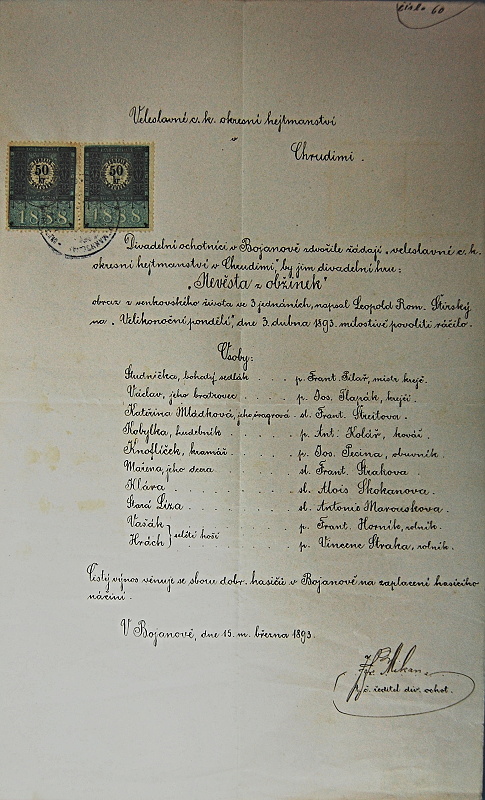 číslo 60
Veleslavné c. k. okresní hejtmanství
v
Chrudimi.
50
kr
1888
50
kr
1888
Divadelní ochotníci v Bojanově zdvořile žádají „veleslavné c. k.
okresní hejtmanství v Chrudimi," by jim divadelní hru:
„Nevěsta z obžinek"
obraz z venkovského života ve 3 jednáních, napsal Leopold Rom. Štirský
na „Velikonoční pondělí," dne 3. dubna 1893 milostivě povoliti ráčilo.
Osoby:
Studnička, bohatý sedlák . . . . p. Frant. Filař, mistr krejč.
Václav, jeho bratrovec . . . . . p. Jos. Šlapák, krejčí.
Kateřina Mládková, jeho švagrová . sl. Frant. Streitova.
Kobylka, hudebník . . . . . p. Ant. Kolář, kovář.
Knoflíček, kramář . . . . . p. Jos. Pecina, obuvník.
Mařena, jeho dcera . . . . . sl. Frant. Strakova.
Klára . . . . . sl. Alois. Skokanova.
Stará Líza . . . . . sl. Antonie Marouskova.
Vašák . . . . . p. Frant. Horník, rolník.
Hrách } selští hoši . . . . . p. Vincenc Straka, rolník.
Čistý výnos věnuje se sboru dobr. hasičů v Bojanově na zaplacení hasicího
náčiní.
V Bojanově, dne 15. m. března 1893.
ředitel div. ochot.